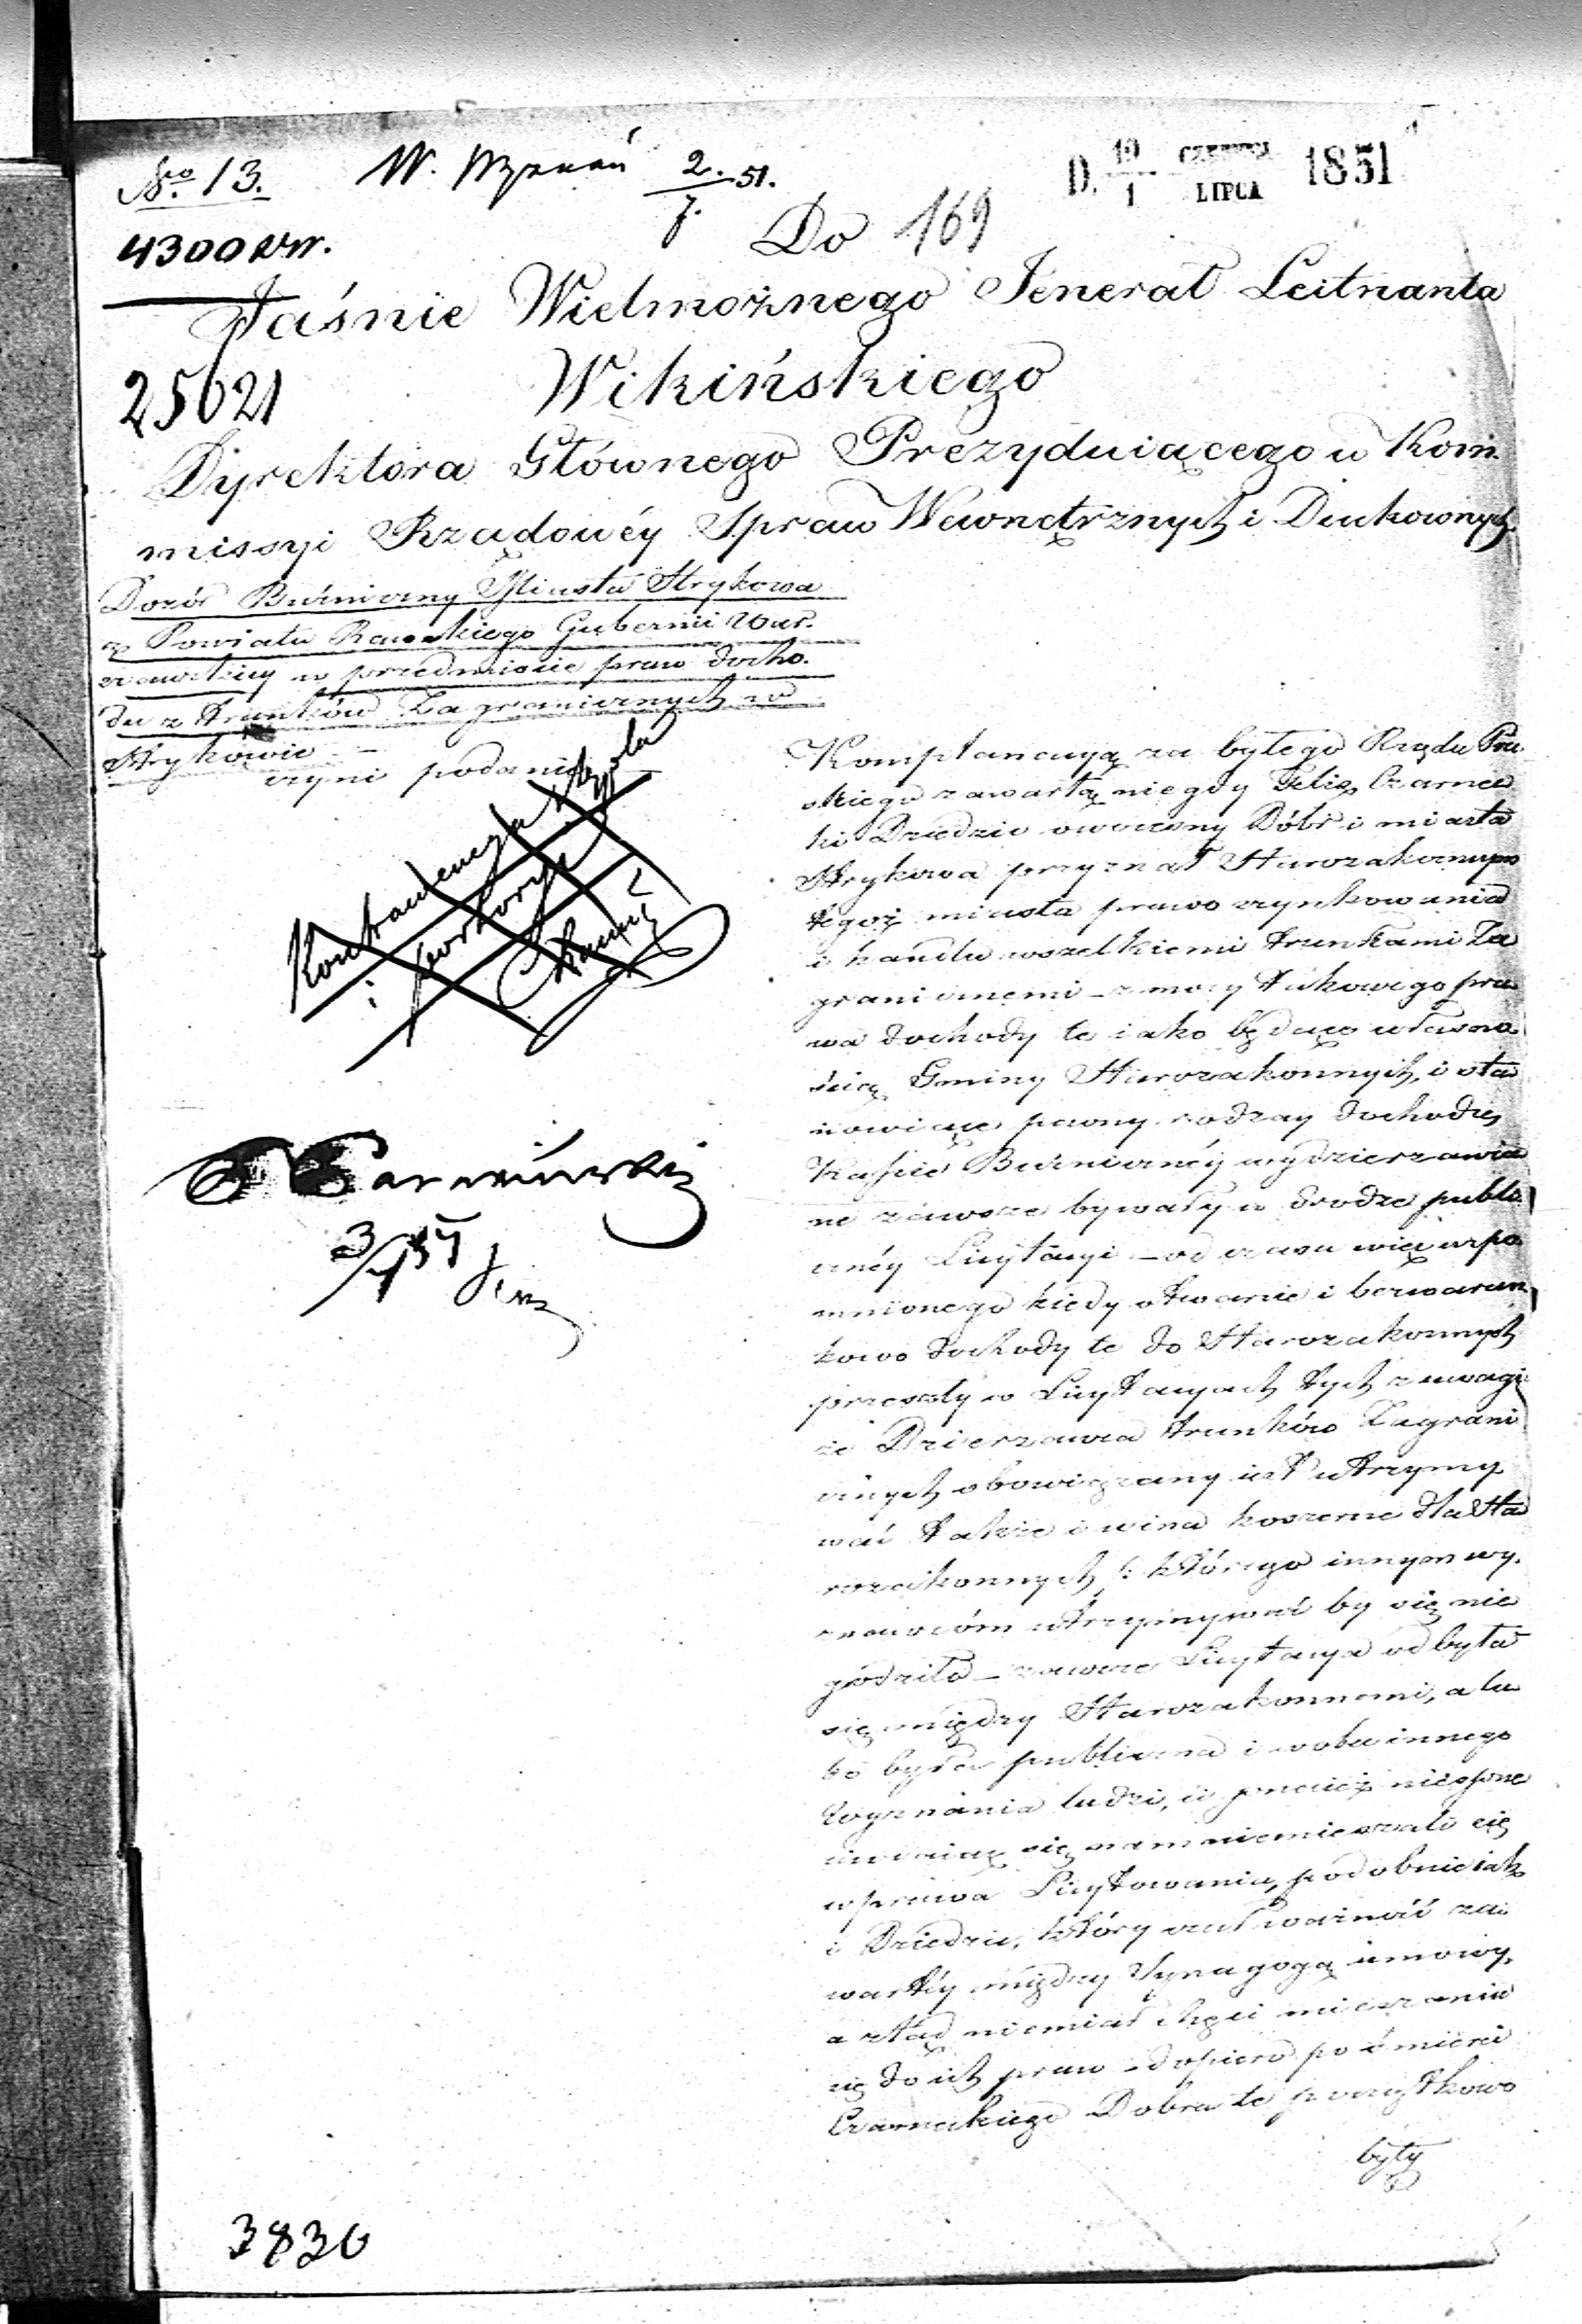 No 13.
W. Wyznań 2/7 51.
D. 19/1 CZERWCA/LIPCA 1851
4300 Wr.
Do 169
Jaśnie Wielmożnego Jenerał Leitnanta
25621
Wikińskiego
Dyrektora Głównego Prezyduiącego w Kom-
missyi Rządowéy Spraw Wewnętrznych i Duchownych
Dozór Bużniczny Miasta Strykowa
z Powiatu Rawskiego Gubernii War-
szawskiey w przedmiocie praw docho-
du z trunków Zagranicznych w
Strykowie
czyni podanie
i
Kompłanacyą za byłego Rządu Pru
skiego zawartą niegdy Felix Czarnec
ki Dziedzic owczesny Dóbr i miasta
Strykowa przyznał Starozakonnym
tegoż miasta prawo szynkowania
i handlu wszelkiemi trunkami Za
granicznemi – z mocy takowego pra
wa dochody te iako będące własno
ścią Gminy Starozakonnych, i sta
nowiące pewny rodzay dochodu
Kassie Bużnicznéy wydzierzawia
ne zawsze bywały w drodze publi
cznéy Licytacyi – od czasu więc wspo
mnionego kiedy otwarcie i bezwarun
kowo dochody te do Starozakonnych
przeszły w Licytacyach tych z uwagi
że Dzierzawca trunków Zagrani
cznych obowiązany iest utrzymy
wać także i wina koszerne dla Sta
rozakonnych /: którego innym wy-
znawcóm utrzymywać by się nie
godziło – zawsze Licytacya odbyła
się między Starozakonnemi, a lu
bo była publiczna i wobec innego
Wyznania ludzi, ci przecież
się sami niemieszali się
w prawa Licytowania, podobnie iak
i Dziedzic, który czuł ważność za-
wartéy między Synagogą umowy,
a ztąd niemiał chęci mieszania
się do ich praw – dopiero po śmierci
Czarneckiego Dobra te początkowo
były
3/7 51
3830